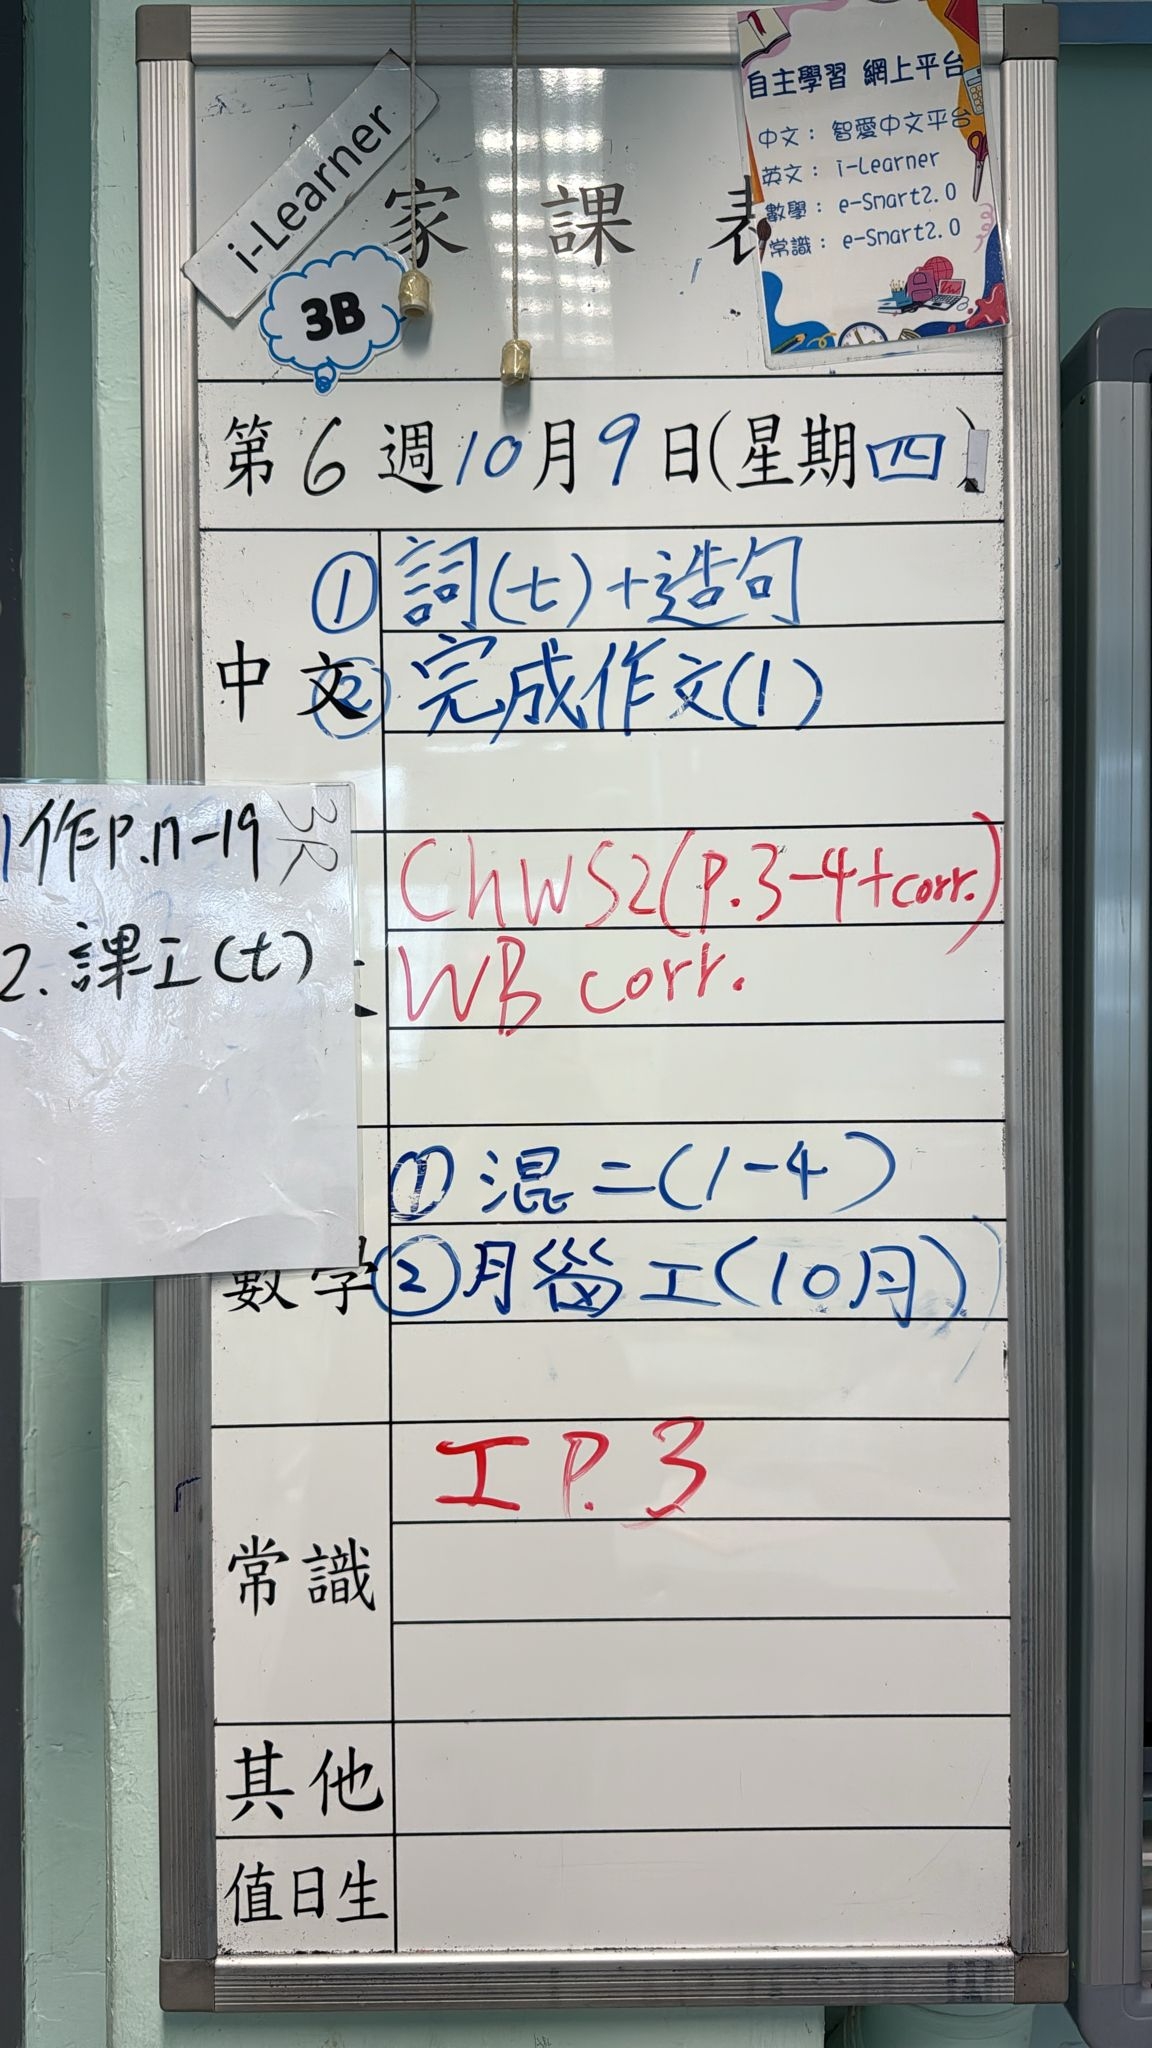 i-Learner
家 課 表
3B
自主學習 網上平台
中文： 智愛中文平台
英文： i-Learner
數學： e-Smart2.0
常識： e-Smart2.0
第 6 週 10 月 9 日(星期四)
中文
① 詞(七)+造句
② 完成作文(1)
3R
作P.17-19
2. 課工(七)
ChWS2(P.3-4+corr.)
WB corr.
數學
① 混二(1-4)
② 月 工(10月)
常識
工 P.3
其他
值日生